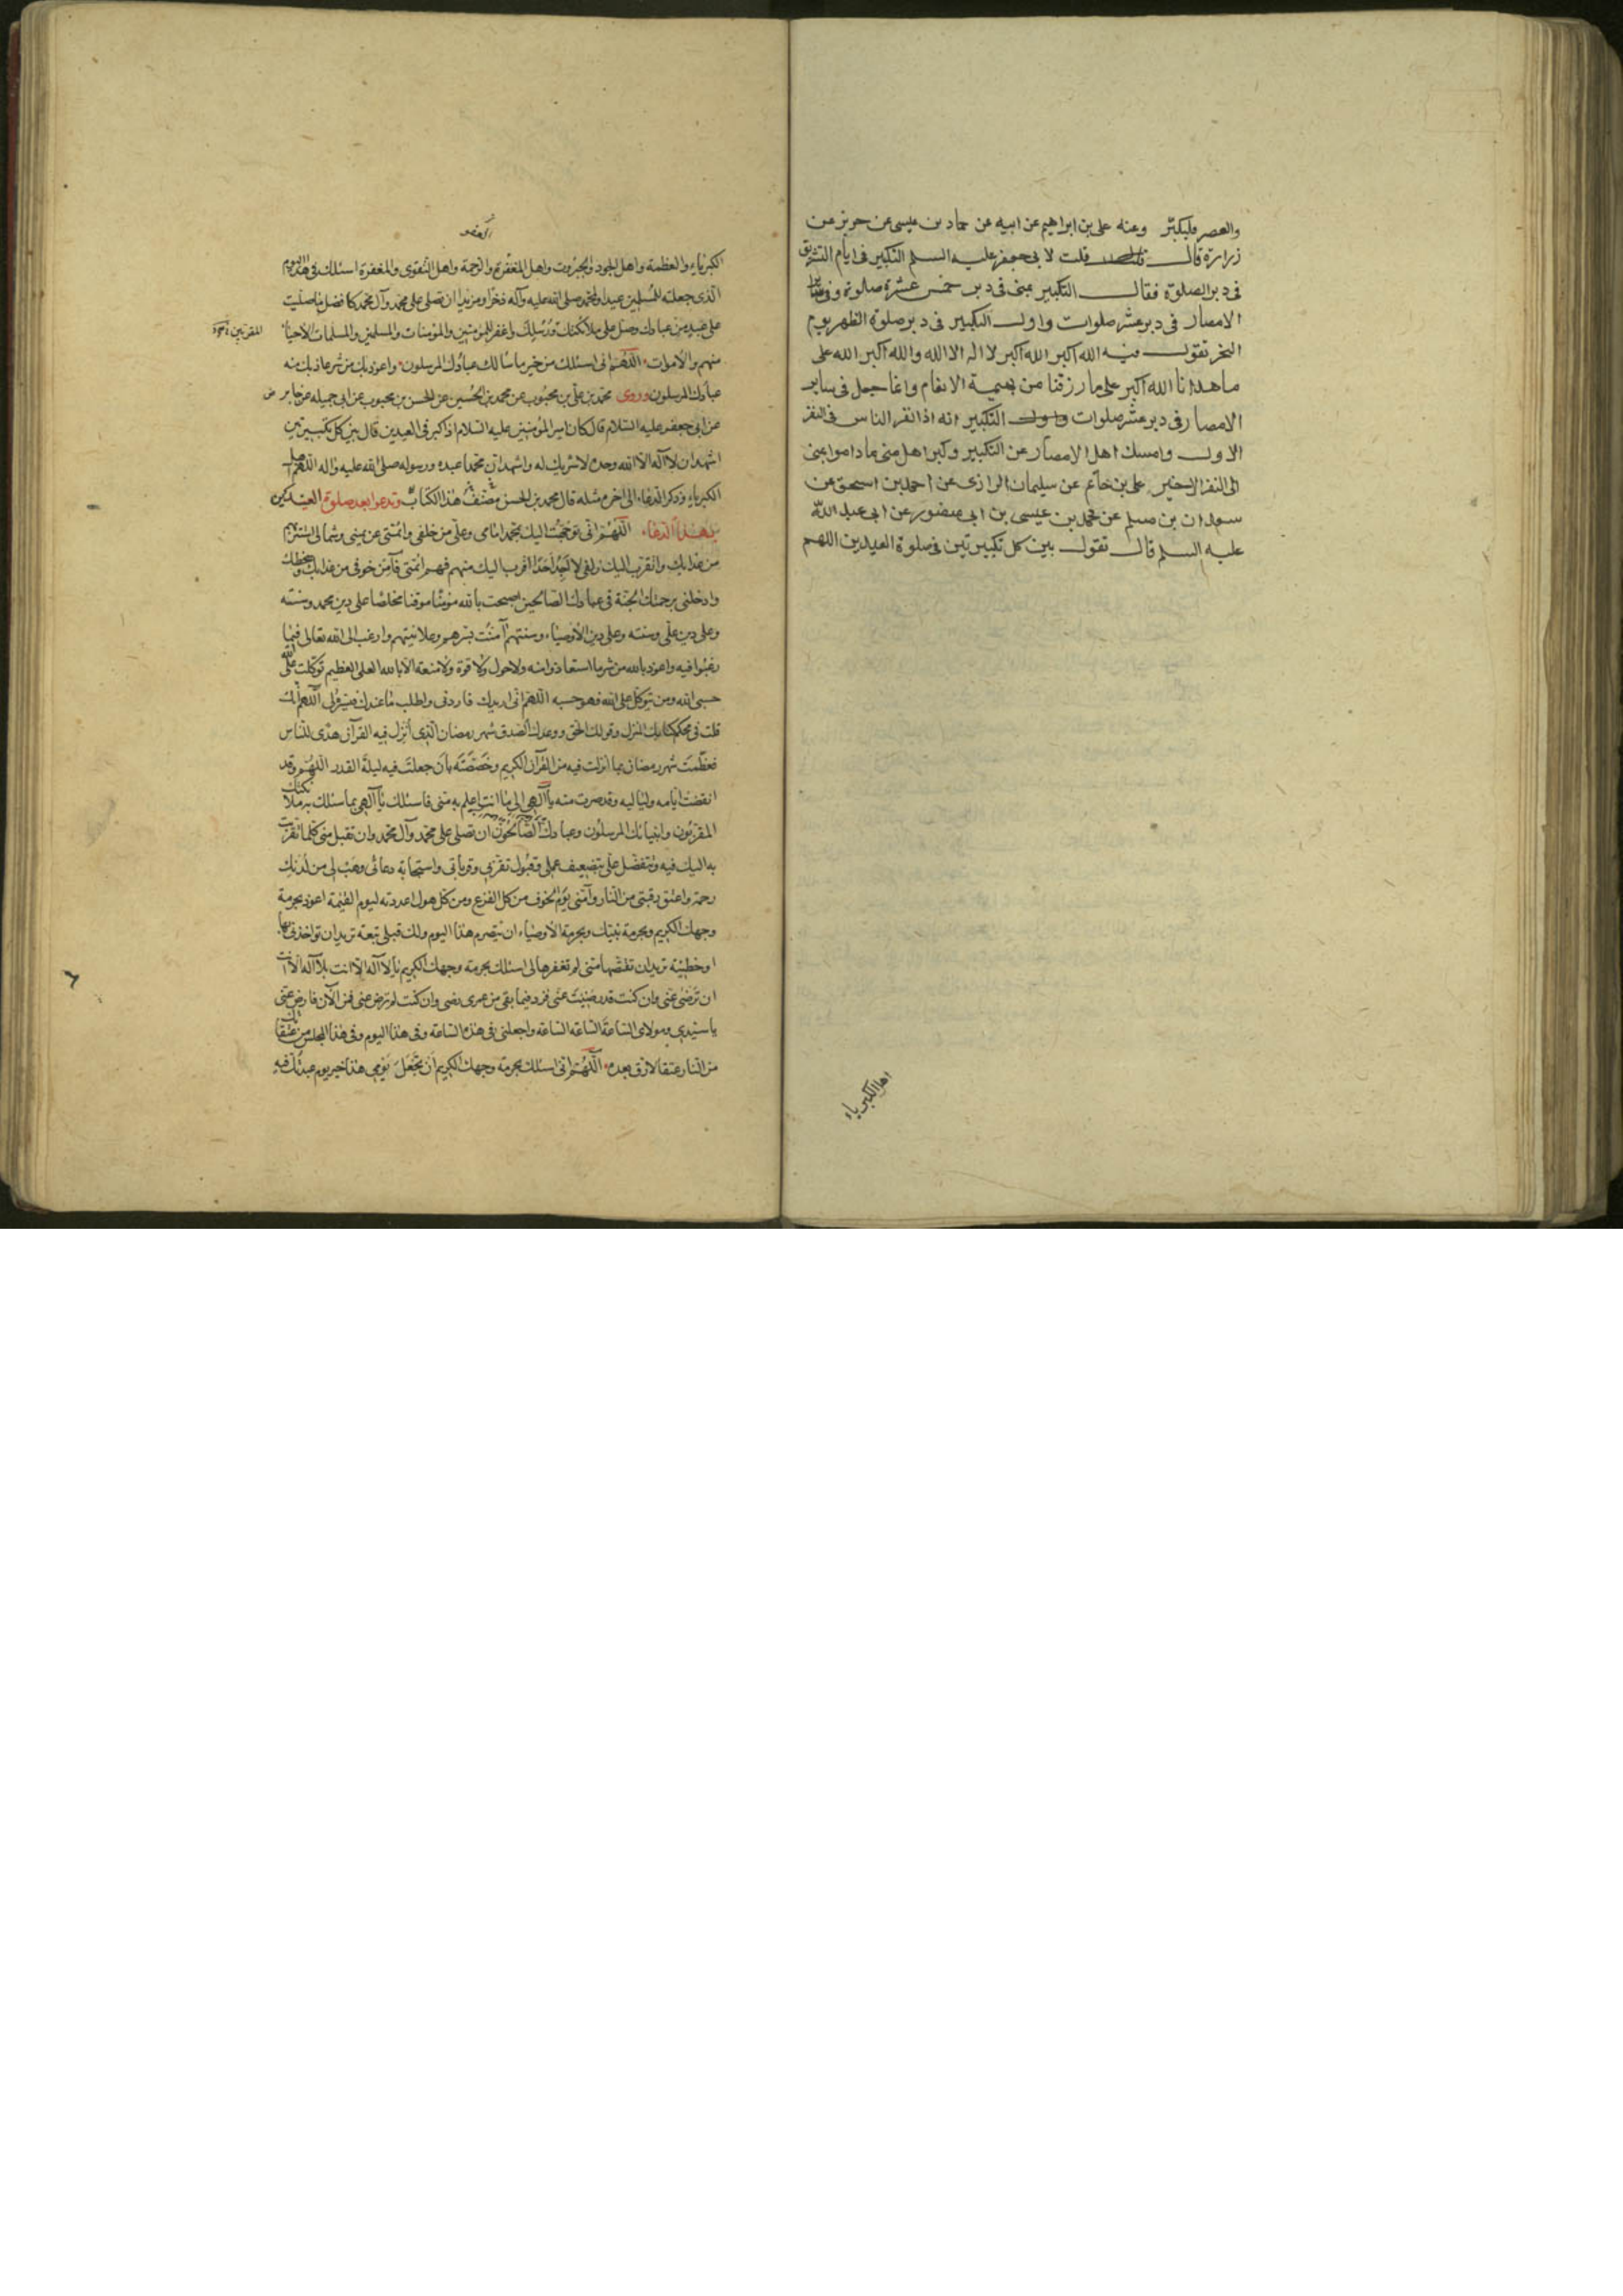 والعصر فليكبر وعنه علي بن ابراهيم عن ابيه عن حماد بن عيسى عن حريز عن
زرارة قال قلت لابي جعفر عليه السلم التكبير في ايام التشريق
في دبر الصلوة فقال التكبير بمنى في دبر خمس عشرة صلوة وفي ساير
الامصار في دبر عشر صلوات واول التكبير في دبر صلوة الظهر يوم
النحر تقول فيه الله اكبر الله اكبر لا اله الا الله والله اكبر الله على
ما هدانا الله اكبر على ما رزقنا من بهيمة الانعام وانما جعل في ساير
الامصار في دبر عشر صلوات التكبير انه اذا نفر الناس في النفر
الاول وامسك اهل الامصار عن التكبير وكبر اهل منى ماداموا بمنى
الى النفر الاخير علي بن حاتم عن سليمان الرازي عن احمد بن اسحق عن
سعدان بن مسلم عن محمد بن عيسى بن ابي منصور عن ابي عبد الله
عليه السلم قال تقول بين كل تكبيرتين في صلوة العيدين اللهم
اهل الكبرياء
العفو
الكبرياء والعظمة واهل الجود والجبروت واهل المغفرة والرحمة واهل التقوى والمغفرة اسئلك في هذا اليوم
الذي جعلته للمسلمين عيدا ولمحمد صلى الله عليه وآله ذخرا ومزيدا ان تصلي على محمد وآل محمد كافضل ما صليت
على عبد من عبادك وصل على ملائكتك ورسلك واغفر للمؤمنين والمؤمنات والمسلمين والمسلمات الاحياء
المقربين
منهم والاموات اللهم اني اسئلك من خير ما سالك عبادك المرسلون واعوذ بك من شر ما عاذ بك منه
عبادك المرسلون وروى محمد بن علي بن محبوب عن محمد بن الحسين عن الحسن بن محبوب عن ابي جميله عن جابر
عن ابي جعفر عليه السلام قال كان امير المؤمنين عليه السلام اذا كبر في العيدين قال بين كل تكبيرتين
اشهد ان لا اله الا الله وحده لا شريك له واشهد ان محمدا عبده ورسوله صلى الله عليه واله اللهم اهل
الكبرياء وذكر الدعاء الى اخره مثله قال محمد بن الحسن مصنف هذا الكتاب وتدعوا بعد صلوة العيدين
بهذا الدعاء اللهم اني توجهت اليك بمحمد امامي وعلي من خلفي وائمتي عن يميني وشمالي استتر بهم
من عذابك واتقرب اليك زلفى لا اجد احدا اقرب اليك منهم فهم ائمتي فآمن خوفي من عذابك وسخطك
وادخلني برحمتك الجنة في عبادك الصالحين اصبحت بالله مؤمنا موقنا مخلصا على دين محمد وسنته
وعلى دين علي وسنته وعلى دين الاوصياء وسنتهم آمنت بسرهم وعلانيتهم وارغب الى الله تعالى فيما
رغبوا فيه واعوذ بالله من شر ما استعاذوا منه ولا حول ولا قوة ولا منعة الا بالله العلي العظيم توكلت على الله
حسبي الله ومن يتوكل على الله فهو حسبه اللهم اني اريدك فاردني واطلب ما عندك فيسره لي اللهم انك
قلت في محكم كتابك المنزل وقولك الحق ووعدك الصدق شهر رمضان الذي انزل فيه القرآن هدى للناس
فعظمت شهر رمضان بما انزلت فيه من القرآن الكريم وخصصته بان جعلت فيه ليلة القدر اللهم وقد
انقضت ايامه ولياليه وقد صرت منه يا آلهي الى ما انت اعلم به مني فاسئلك يا آلهي بما سئلك به ملائكتك
المقربون وانبيائك المرسلون وعبادك الصالحون ان تصلي على محمد وآل محمد وان تقبل مني كلما تقربت
به اليك فيه وتتفضل علي بتضعيف عملي وقبول تقربي وقرباتي واستجابة دعائي وهب لي من لدنك
رحمة واعتق رقبتي من النار وآمني يوم الخوف من كل الفزع ومن كل هول اعددته ليوم القيمة اعوذ بحرمة
وجهك الكريم وبحرمة نبيك وبحرمة الاوصياء ان يتصرم هذا اليوم ولك قبلي تبعة تريد ان تؤاخذني بها
او خطيئة تريد ان تقتصها مني لم تغفرها لي اسئلك بحرمة وجهك الكريم يا لا آله الا انت بلا آله الا انت
ان ترضى عني وان كنت قد رضيت عني فزد فيما بقي من عمري رضى وان كنت لم ترض عني فمن الآن فارض عني
يا سيدي ومولاي الساعة الساعة الساعة واجعلني في هذه الساعة وفي هذا اليوم وفي هذا المجلس من عتقائك
من النار عتقا لا رق بعده اللهم اني اسئلك بحرمة وجهك الكريم ان تجعل يومي هذا خير يوم عبدتك فيه